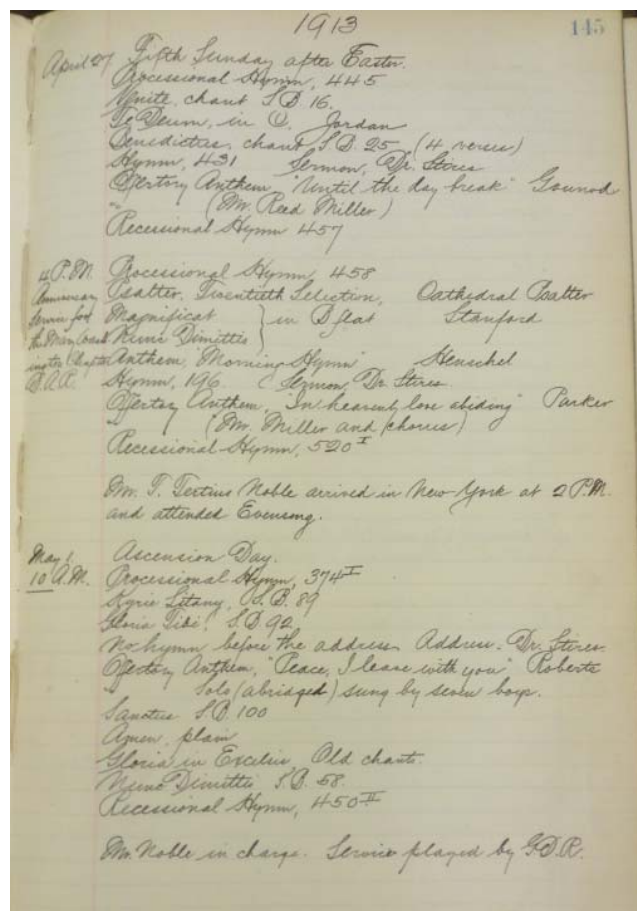 1913
145
April 27 Fifth Sunday after Easter.
Processional Hymn, 445
Venite, chant S.B. 16.
Te Deum, in C. Jordan
Benedictus, chant S.B. 25 (4 verses)
Hymn, 431 Sermon, Dr. Stires
Offertory Anthem, "Until the day break" Gounod
" (Mr. Reed Miller)
Recessional Hymn 457
4 P.M. Processional Hymn, 458
Anniversary Psalter, Twentieth Selection, Cathedral Psalter
Service for Magnificat } in B flat Stanford
the Mary Wash Nunc Dimittis
ington Chapter Anthem, "Morning Hymn" Henschel
D.A.R. Hymn, 196. Sermon, Dr. Stires
Offertory Anthem, "In heavenly love abiding" Parker
" (Mr. Miller and chorus)
Recessional Hymn, 520 I
Mr. T. Tertius Noble arrived in New York at 2 P.M.
and attended Evensong.
May 1, Ascension Day.
10 A.M. Processional Hymn, 374 I
Kyrie Litany, S.B. 89
Gloria Tibi, S.B 92
No hymn before the address. Address. Dr. Stires
Offertory Anthem, "Peace, I leave with you" Roberts
Solo (abridged) sung by seven boys.
Sanctus S.B. 100
Amen, plain
Gloria in Excelsis, Old chant.
Nunc Dimittis S.B. 58.
Recessional Hymn, 450 II
Mr. Noble in charge. Service played by G.D.R.